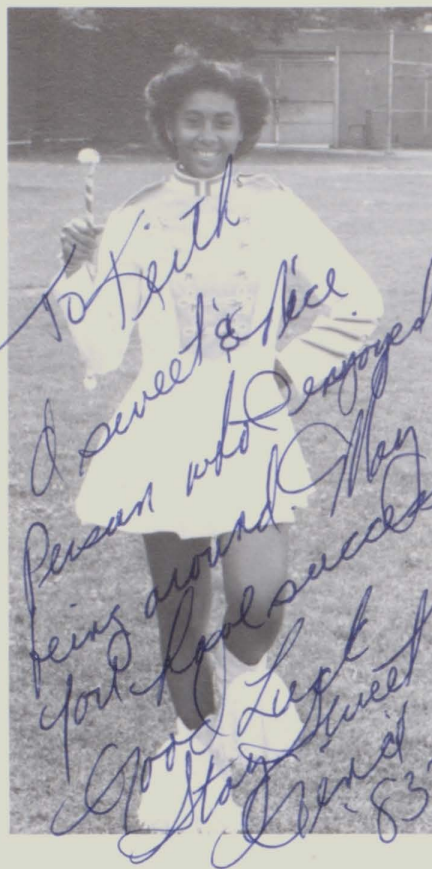 To Keith
A sweet & Nice
Person who I enjoyed
being around. May
you have success
Good Luck
Stay Sweet
'83